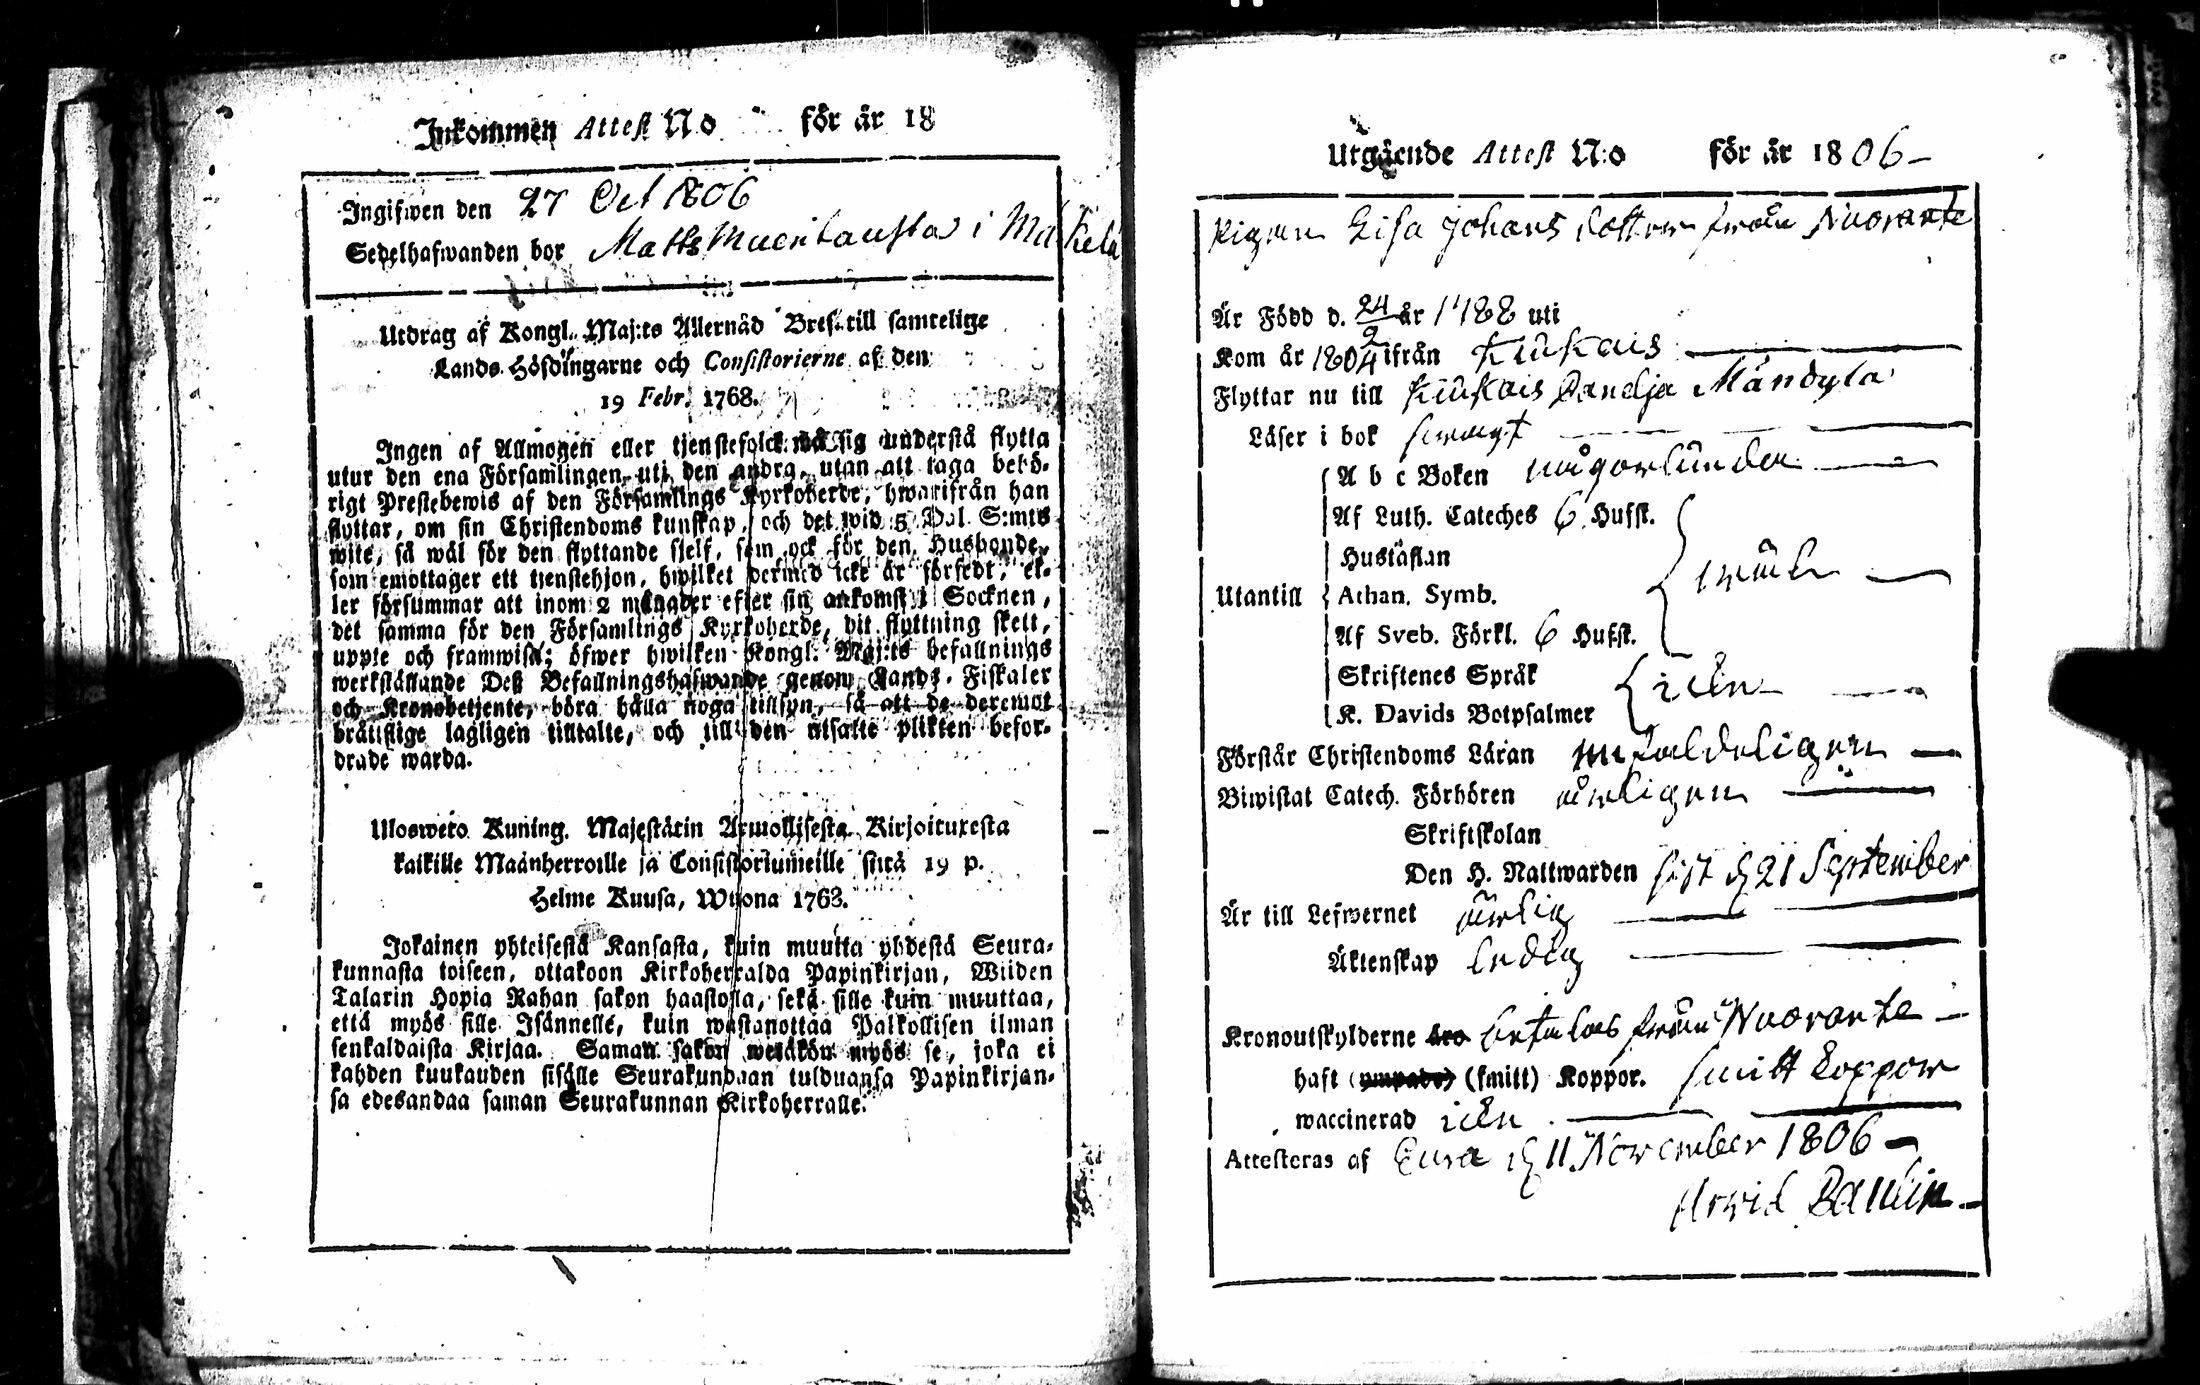 Inkommen Attest No för år 18
Ingifwen den 27 Oct 1806
Sedelhafwanden bor Matts i Mäkelä
Utdrag af Kongl. Maj:ts Allernåd Bref till samtelige
Lands Höfdingarne och Consistorierne af den
19 Febr. 1768.
Ingen af Allmogen eller tjenstefolck må sig understå flytta
utur den ena Församlingen uti den andra, utan att taga behö-
rigt Prestebewis af den Församlings Kyrkoherde, hwarifrån han
flyttar, om sin Christendoms kunskap, och det wid 5 Dal. S:mts
wite, så wäl för den flyttande sjelf, som ock för den Husbonde,
som emottager ett tjenstehjon, hwilket dermed icke är försedt, el-
ler försummar att inom 2 månader efter sin ankomst i Socknen,
det samma för den Församlings Kyrkoherde, dit flyttning skett,
uppte och framwisa; öfwer hwilken Kongl. Maj:ts befallnings
werkställande Deß Befallningshafwande genom Lands-Fiskaler
och Kronobetjente, böra hålla noga tillsyn, så att de deremot
bråttslige lagligen tilltalte, och till den utsatte plikten befor-
drade warda.
Ulosweto Kuning. Majestätin Armollisesta Kirjoituxesta
kaikille Maanherroille ja Consistoriumeille siitä 19 p.
Helme Kuusa, Wuona 1768.
Jokainen yhteisestä Kansasta, kuin muutta yhdestä Seura-
kunnasta toiseen, ottakoon Kirkoherralda Papinkirjan, Wiiden
Talarin Hopia Rahan sakon haastolla, sekä sille kuin muuttaa,
että myös sille Isännelle, kuin wastanottaa Palkollisen ilman
senkaldaista Kirjaa. Saman sakon wetäkön myös se, joka ei
kahden kuukauden sisälle Seurakundaan tulduansa Papinkirjan-
sa edesandaa saman Seurakunnan Kirkoherralle.
Utgående Attest N:o för år 1806
Pigan Lisa Johans dotter från Nuorante
Är Född d. 24/2 år 1788 uti
Kom år 1804 ifrån Kiukais
Flyttar nu till Kiukais Panelja Mändylä
Läser i bok swagt
A b c Boken någorlunda
Af Luth. Cateches 6 Hufst.
Hustaflan
Utantill Athan. Symb.
Af Sveb. Förkl. 6 Hufst.
Skriftenes Språk icke
K. Davids Botpsalmer
Förstår Christendoms Läran enfaldeligen
Biwistat Catech. Förhören årligen
Skriftskolan
Den H. Nattwarden sist d. 21 September
Är till Lefwernet ärlig
Äktenskap ledig
Kronoutskylderne äro betalas från Nuorante
haft (ympade) (smitt) Koppor. smitt koppor
waccinerad icke
Attesteras af Eura d. 11 November 1806
Arvid Paulin